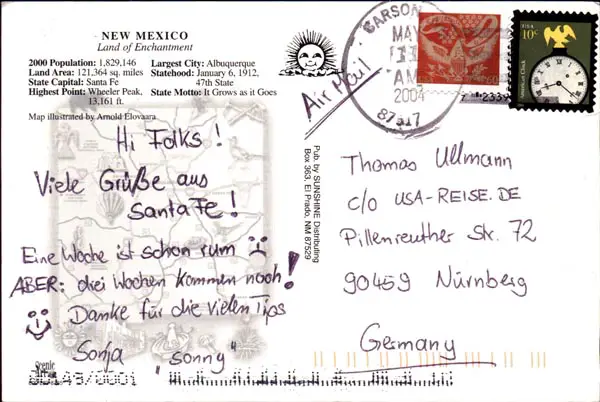 NEW MEXICO
Land of Enchantment
2000 Population: 1,829,146
Land Area: 121,364 sq. miles
State Capital: Santa Fe
Highest Point: Wheeler Peak,
13,161 ft.
Largest City: Albuquerque
Statehood: January 6, 1912,
47th State
State Motto: It Grows as it Goes
Map illustrated by Arnold Elovaara
Hi Folks!
Viele Grüße aus
Santa Fe!
Eine Woche ist schon rum
ABER: drei Wochen kommen noch!
Danke für die vielen Tips
Sonja "Sonny"
Scenic
Art
Pub. by SUNSHINE Distributing
Box 363, El Prado, NM 87529
Air Mail
CARSON
MAY
11
AM
2004
USA
10¢
American Clock
Thomas Ullmann
c/o USA-REISE.DE
Pillenreuther Str. 72
90459 Nürnberg
Germany